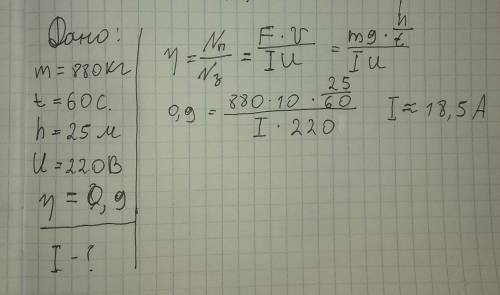 Дано:
m = 880 кг
t = 60 с.
h = 25 м
U = 220 В
η = 0,9
I - ?
η = Nп/Nз = F · v / I U = mg · h/t / I U
0,9 = 880 · 10 · 25/60 / I · 220    I ≈ 18,5 А